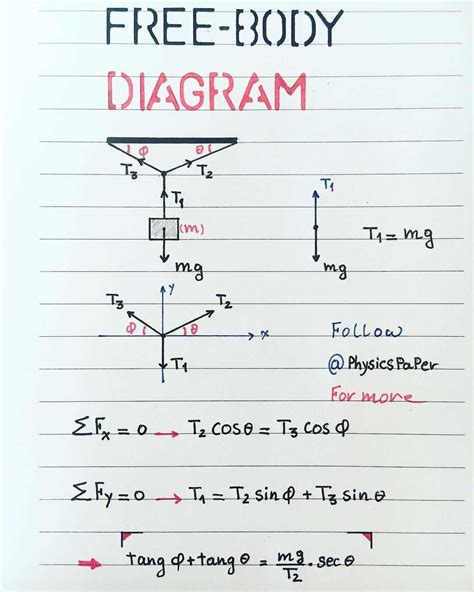 FREE-BODY
DIAGRAM
φ θ
T₃ T₂
T₁
T₁
(m)
T₁ = mg
mg
mg
y
T₃ T₂
φ θ x
T₁
Follow
@PhysicsPaper
For more
ΣFx = 0 → T₂ cosθ = T₃ cos φ
ΣFy = 0 → T₁ = T₂ sin φ + T₃ sin θ
→ tang φ + tang θ = mg/T₂ . sec θ